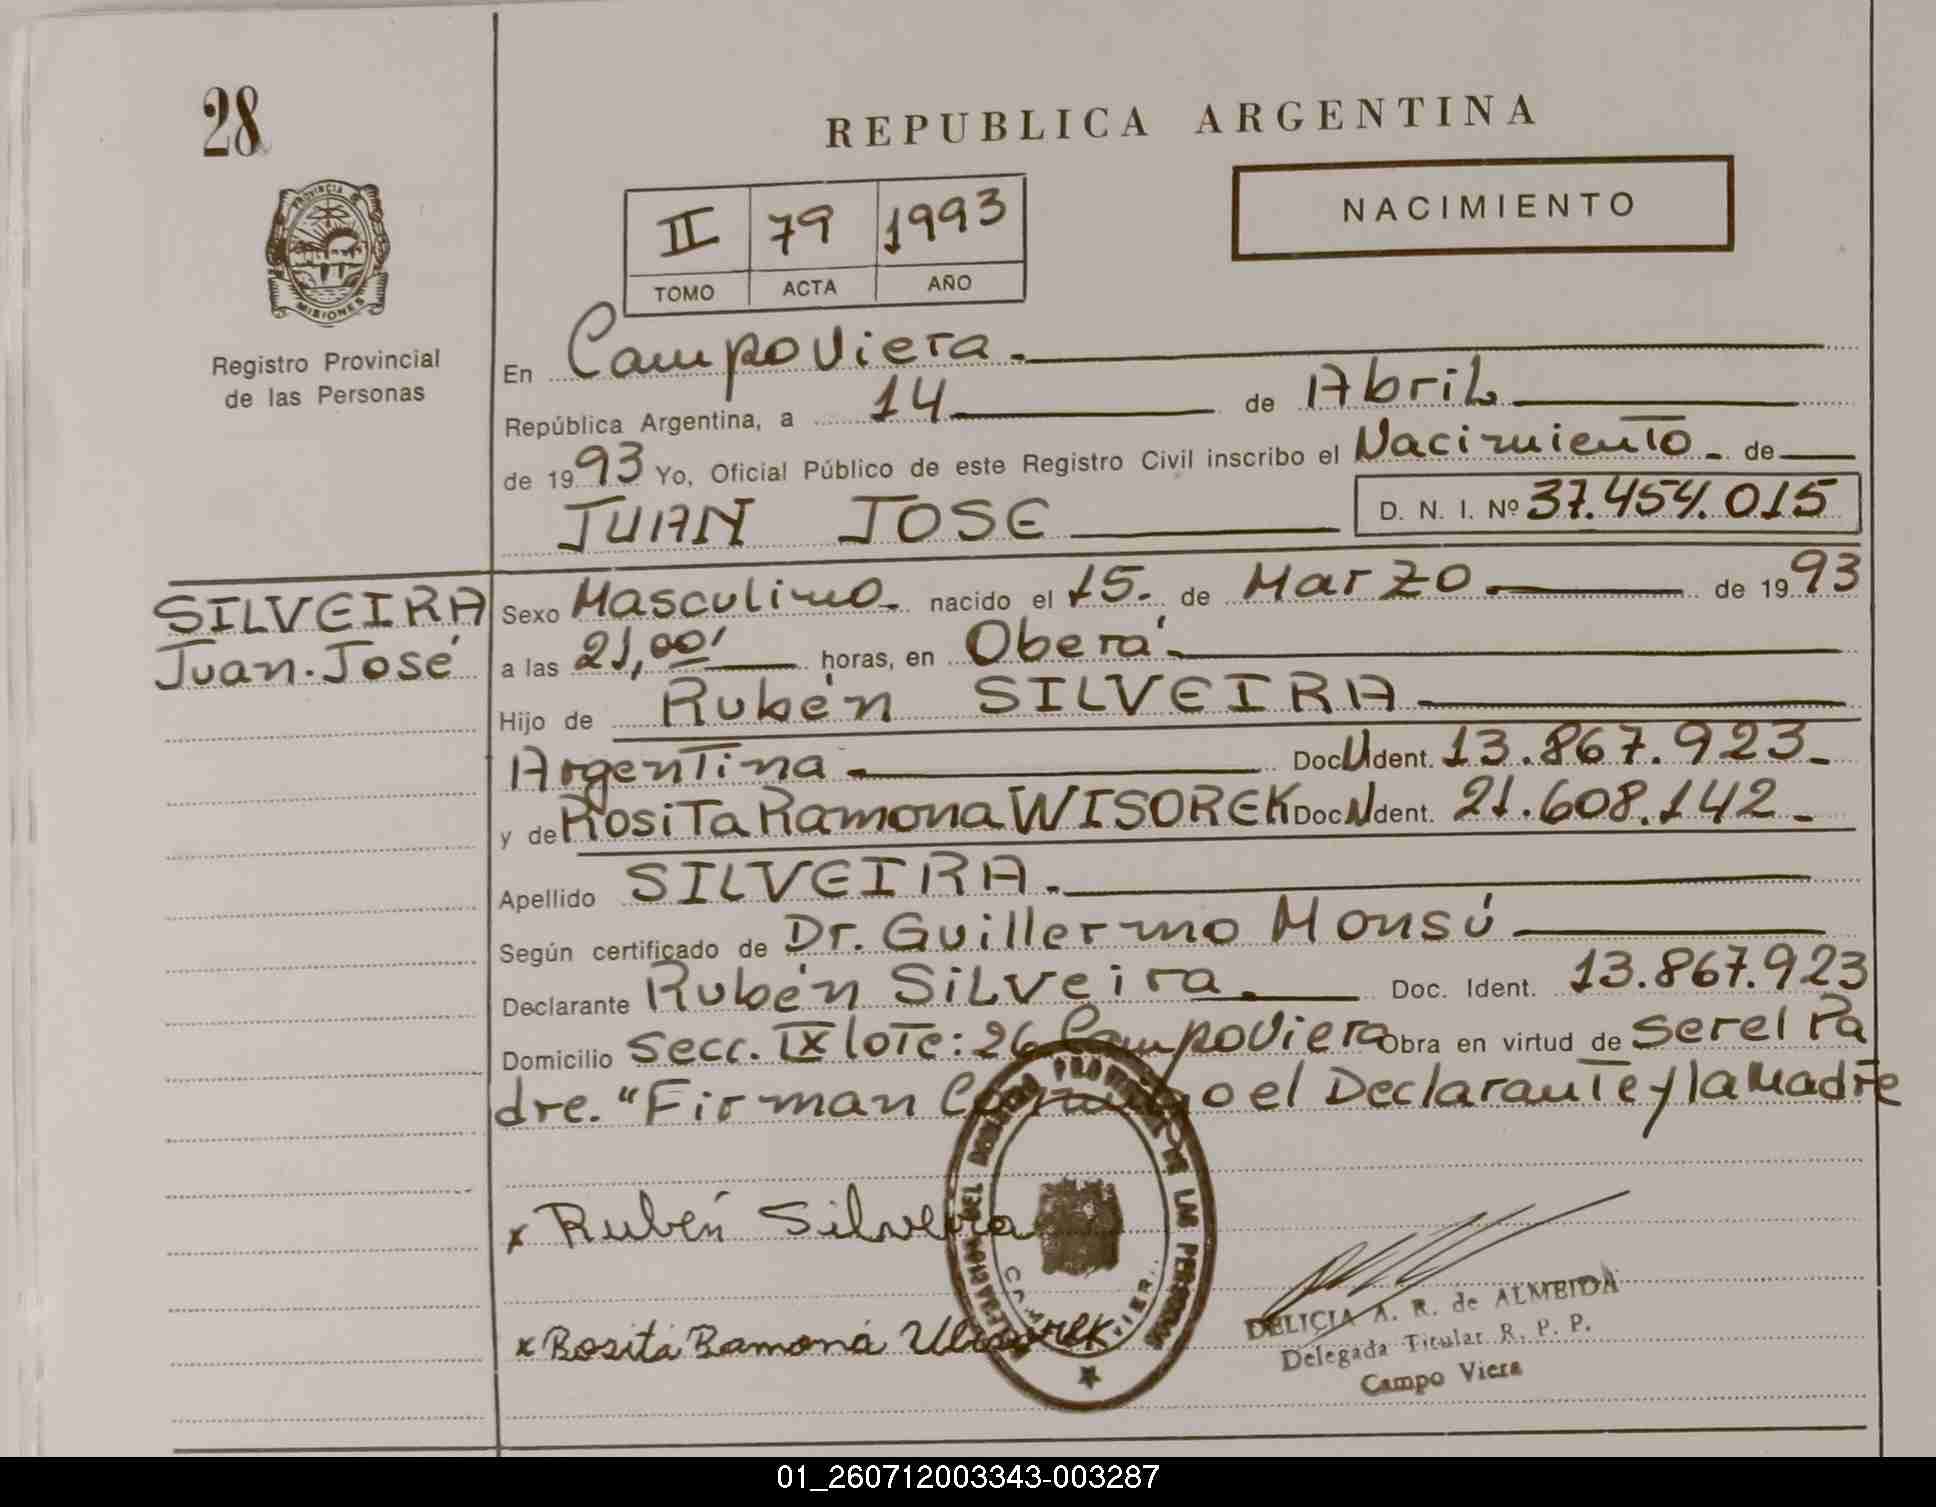 28
REPUBLICA ARGENTINA
PROVINCIA DE
MISIONES
Registro Provincial
de las Personas
II 79 1993
TOMO ACTA AÑO
NACIMIENTO
En Campo Viera.
República Argentina, a 14 de Abril
de 1993 Yo, Oficial Público de este Registro Civil inscribo el Nacimiento de
JUAN JOSE D. N. I. Nº 37.454.015
SILVEIRA
Juan José
Sexo Masculino. nacido el 15. de Marzo de 1993
a las 21,00' horas, en Oberá
Hijo de Rubén SILVEIRA
Argentina Doc U Ident. 13.867.923
y de Rosita Ramona WISOREK Doc N Ident. 21.608.142
Apellido SILVEIRA.
Según certificado de Dr. Guillermo Monsú
Declarante Rubén Silveira. Doc. Ident. 13.867.923
Domicilio Secc. IX lote: 26 Campo Viera Obra en virtud de Ser el Pa
dre. "Firman Conmigo el Declarante y la Madre
x Rubén Silveira
x Rosita Ramona
PROVINCIAL DE LAS PERSONAS
DELICIA A. R. de ALMEIDA
Delegada Titular R. P. P.
Campo Viera
01_260712003343-003287